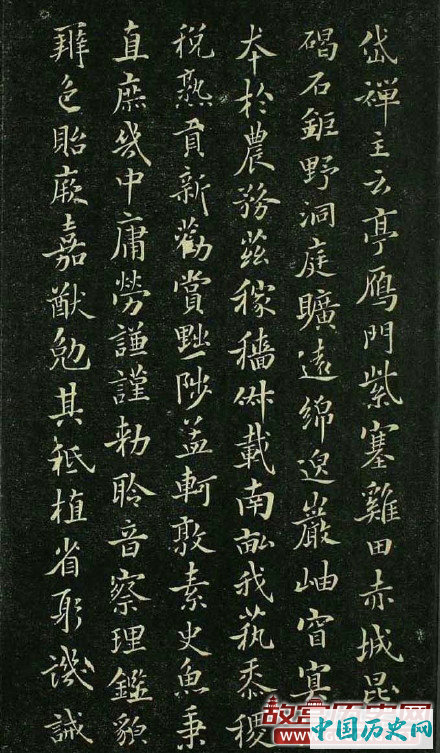 岱禪主云亭鴈門紫塞雞田赤城昆
碣石鉅野洞庭曠遠綿邈巖岫窅冥
本於農務茲稼穡俶載南畝我藝黍稷
稅熟貢新勸賞黜陟孟軻敦素史魚秉
直庶幾中庸勞謙謹勅聆音察理鑑貌
辨色貽厥嘉猷勉其祗植省躬譏誡
中国历史网